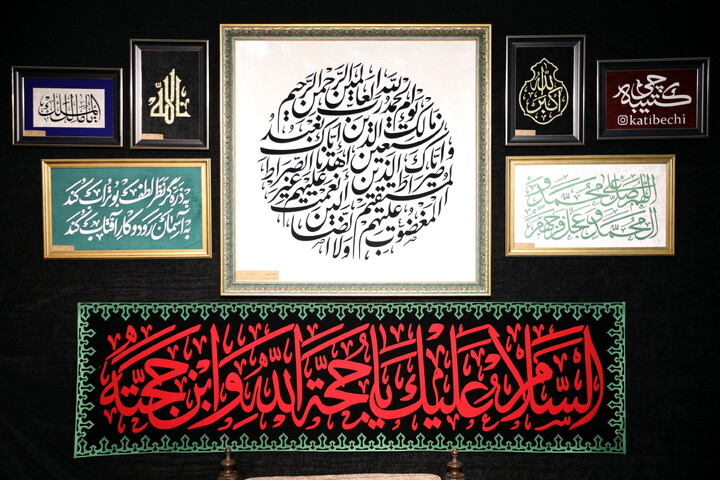 یا مالک الملک
الله
الحمد لله رب العالمین الرحمن الرحیم
مالک یوم الدین ایاک نعبد
و ایاک نستعین اهدنا الصراط
المستقیم صراط الذین انعمت
علیهم غیر المغضوب علیهم
ولا الضالین
الله اکبر
کتیبه چی
@katibechi
به ذره گر نظر لطف بوتراب کند
به آسمان رود و کار آفتاب کند
اللهم صل علی محمد و
آل محمد و عجل فرجهم
السلام علیک یا حجة الله وابن حجته